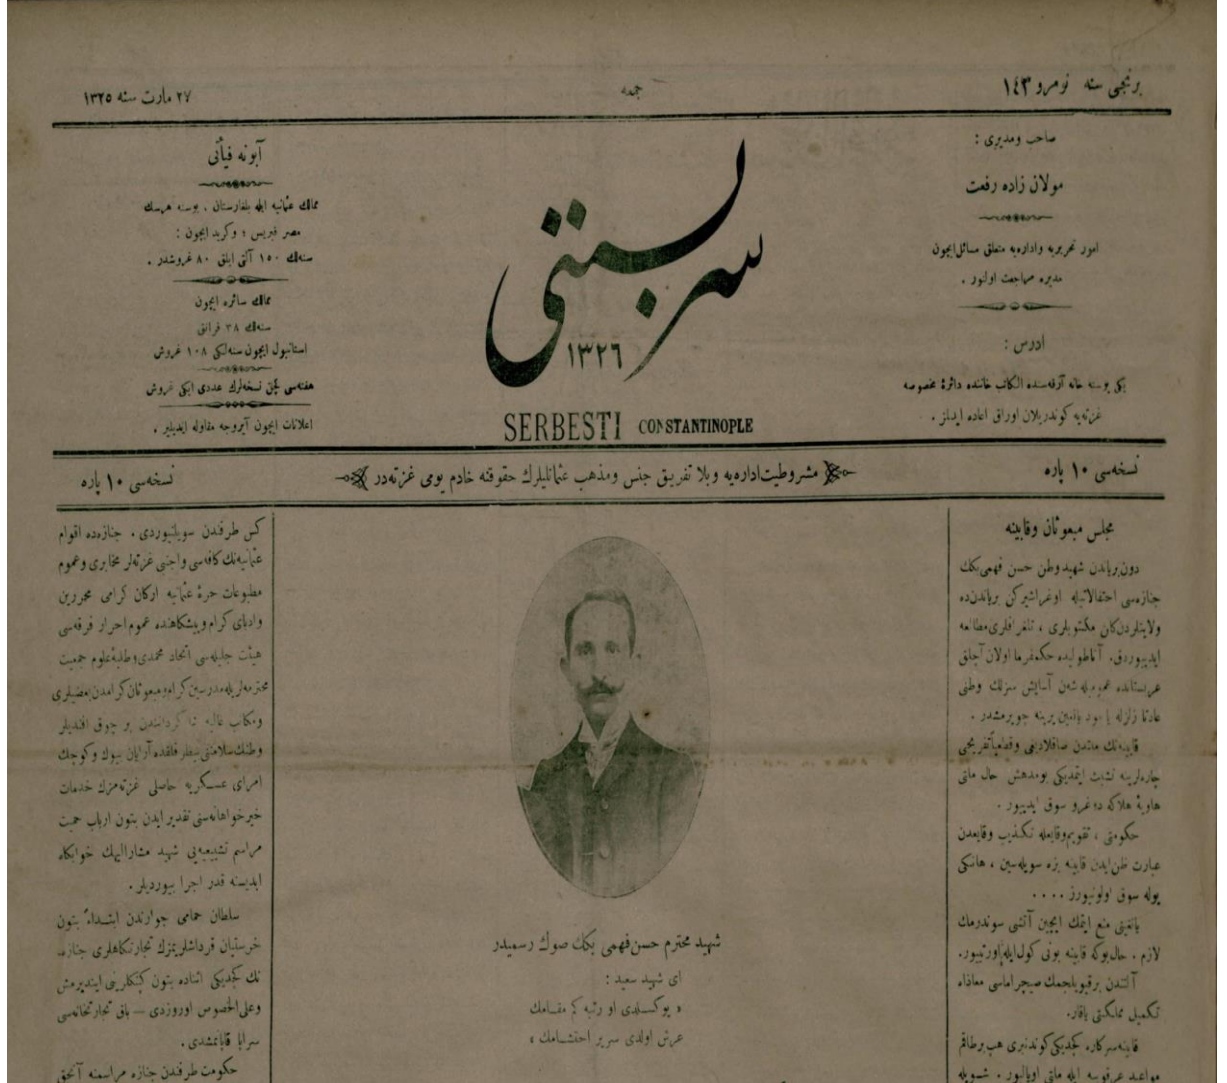 برنجی سنه نومرو ١٤٣
جمعه
٢٧ مارت سنه ١٣٢٥
صاحب ومدیری :
مولان زاده رفعت
امور تحریریه واداره‌یه متعلق مسائل ایچون
مدیره مراجعت اولنور .
ادرس :
یکی پوسته خانه آرقه‌سنده الکاتب خاننده دائرهٔ مخصوصه
غزته‌یه کوندریلان اوراق اعاده ایدلمز .
سربستی
١٣٢٦
SERBESTI CONSTANTINOPLE
آبونه فیأتی
ممالك عثمانیه ایله بلغارستان ، بوسنه هرسك
مصر قبریس ؛ وکرید ایچون :
سنه‌لك ١٥٠ آلتی ایلق ٨٠ غروشدر .
ممالك سائره ایچون
سنه‌لك ٣٨ فرانق
استانبول ایچون سنه‌لکی ١٠٨ غروش
هفته‌سی کچن نسخه‌لرك عددی ایکی غروش
اعلانات ایچون آیروجه مقاوله ایدیلیر .
نسخه‌سی ١٠ پاره
مشروطیت اداره‌یه وبلا تفریق جنس ومذهب عثمانلیلرك حقوقنه خادم یومی غزته‌در
نسخه‌سی ١٠ پاره
مجلس مبعوثان وقابینه
دون بریاندن شهید وطن حسن فهمی بكك
جنازه‌سی احتفالاتیله اوغراشیرکن بریاندن ده
ولایتلردن کلن مکتوبلری ، تلغرافلری مطالعه
ایدییوردق. آناطولیده حکمفرما اولان آچلق
عربستانده عمومیله شن آسایش سزلك وطنی
عادتا زلزله یرینه چویرمشدر .
قابینه‌نك ملتدن صاقلادیغی وقطعیاً تفریحی
چاره‌لرینه تشبث ایتمدیکی بومدهش حال ملتی
هاویهٔ هلاکه دوغرو سوق ایدییور .
حکومتی ، تقویم وقایعله تکذیب وقایعدن
عبارت ظن ایدن قابینه بزه سویله‌سین ، هانکی
یوله سوق اولونیورز . . . .
یانغینی منع ایتمك ایچین آتشی سوندرمك
لازم . حال بوکه قابینه بونی کول ایله اورتییور.
آلتندن برقیویلجمك صیچراماسی معاذاه
تکمیل مملکتی یاقار.
قابینه سرکاره کچدیکی کوندنبری هپ برطاقم
مواعید عرقوبیه ایله ملتی اویالیور . شویله
شهید محترم حسن فهمی بكك صوك رسمیدر
ای شهید سعید :
« یوکسلدی او رتبه کم مقامك
عرش اولدی سریر احتشامك »
کس طرفندن سویلنیوردی . جنازه‌ده اقوام
عثمانیه‌نك کافه‌سی واجنبی غزته‌لر مخابری وعموم
مطبوعات حرهٔ عثمانیه ارکان کرامی محررین
وادبای کرام وپیشکاهنده عموم احرار فرقه‌سی
هیئت جلیله‌سی اتحاد محمدی وطلبهٔ علوم جمعیت
محترمه‌لریله مدرسین کرام ومبعوثان کرامدن بعضیلری
ومکاتب عالیه بر چوق افندیلر
وطنك سلامتنی بیطرفلقده آرایان بیوك وکوچك
امرای عسکریه حاصلی غزته‌مزك خدمات
خیرخواهانه‌سنی تقدیر ایدن بتون ارباب حمیت
مراسم تشییعیه‌یی شهید مشارالیهك خوابکاه
ابدیسنه قدر اجرا بیوردیلر .
سلطان حمامی جوارندن ابتداءً بتون
خرستیان قرداشلریمزك تجارتکاهلری جنازه‌
نك کچدیکی اثناده بتون کپنکلرینی ایندیرمش
وعلی الخصوص اوروزدی — باق تجارتخانه‌سی
سراپا قاپانمشدی .
حکومت طرفندن جنازه مراسمنه آنجق